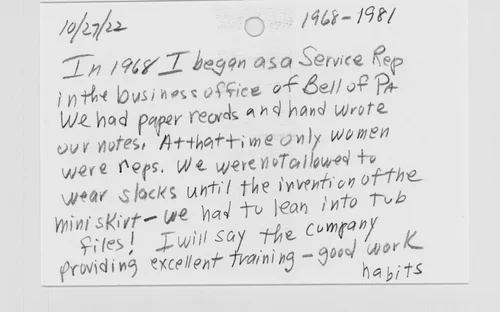 10/27/22
1968-1981
In 1968 I began as a Service Rep
in the business office of Bell of PA
We had paper records and hand wrote
our notes. At that time only women
were reps. We were not allowed to
wear slacks until the invention of the
mini skirt - we had to lean into tub
files! I will say the company
providing excellent training - good work
habits